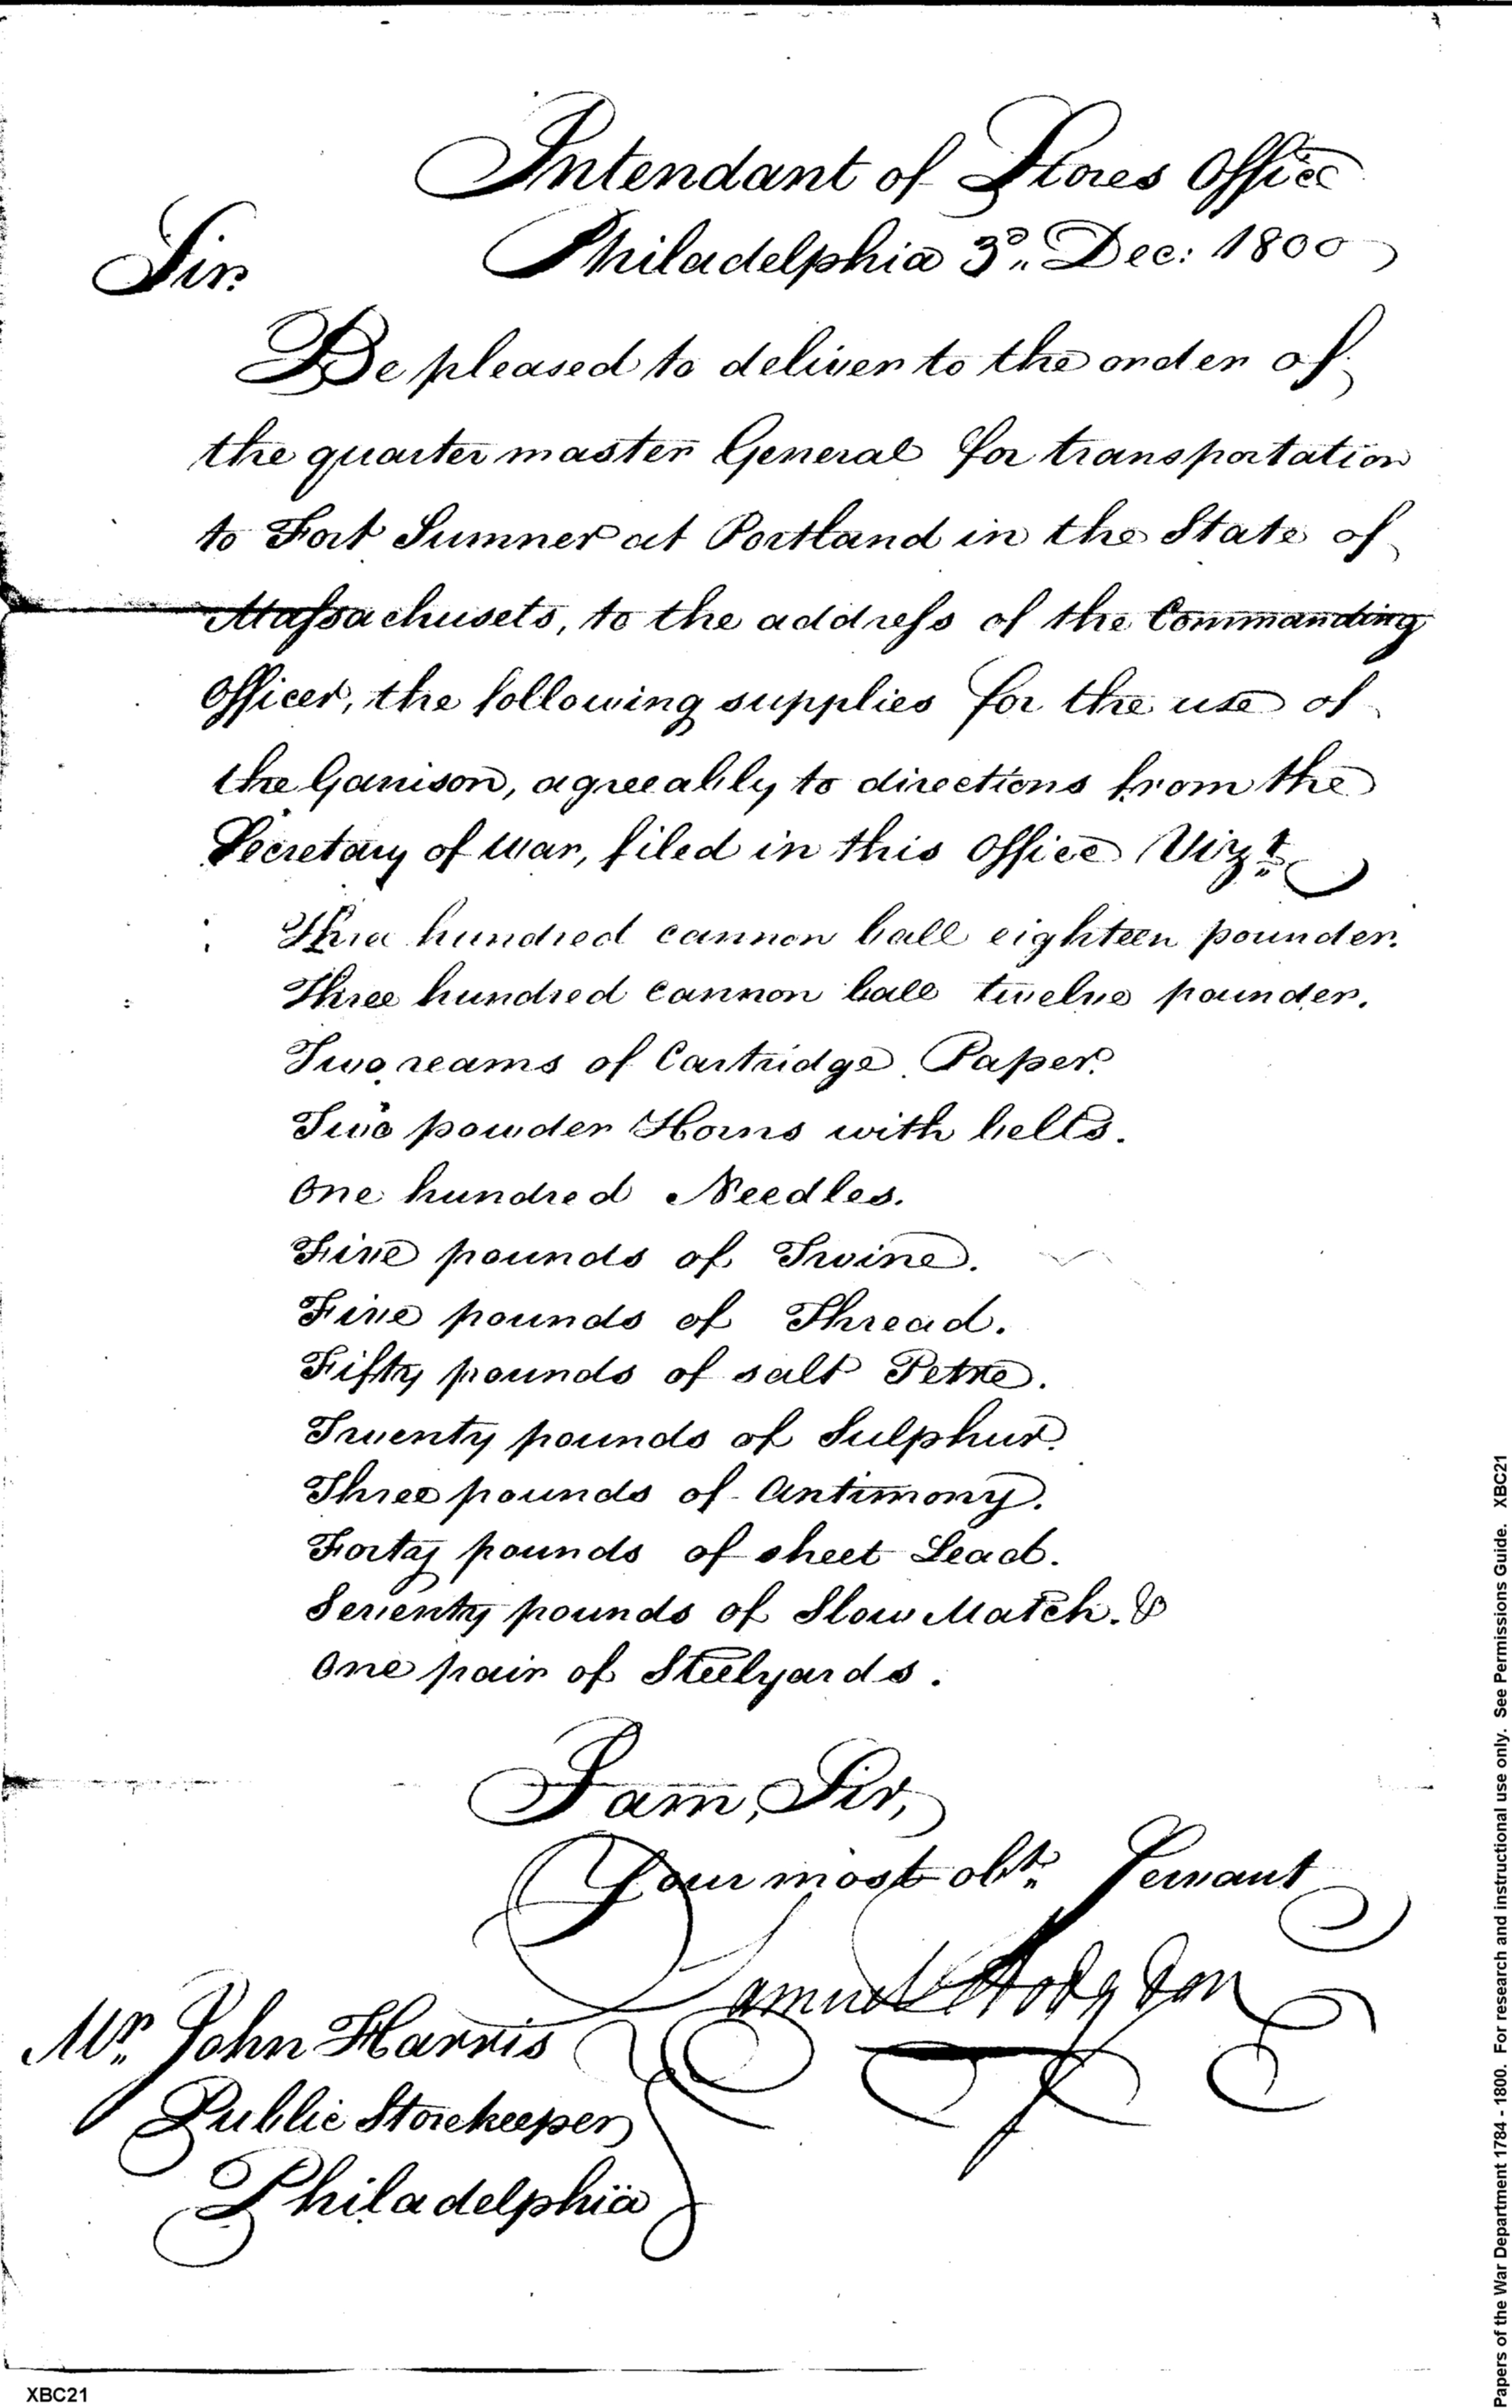 Intendant of Stores Office
Philadelphia 3d. Dec: 1800
Sir.
Be pleased to deliver to the order of
the quarter master General for transportation
to Fort Sumner at Portland in the State of
Massachusets, to the address of the Commanding
Officer, the following supplies for the use of
the Garrison, agreeably to directions from the
Secretary of War, filed in this Office Vizt.
Three hundred cannon ball eighteen pounder.
Three hundred cannon ball twelve pounder.
Two reams of Cartridge Paper.
Two powder Horns with belts.
One hundred Needles.
Five pounds of Twine.
Five pounds of Thread.
Fifty pounds of salt Petre.
Twenty pounds of Sulphur.
Three pounds of Antimony.
Forty pounds of sheet Lead.
Seventy pounds of Slow Match. &
One pair of Steelyards.
I am, Sir,
Your most obt. Servant
Samuel Hodgdon
Mr. John Harris
Public Storekeeper
Philadelphia
XBC21
Papers of the War Department 1784 - 1800. For research and instructional use only. See Permissions Guide. XBC21